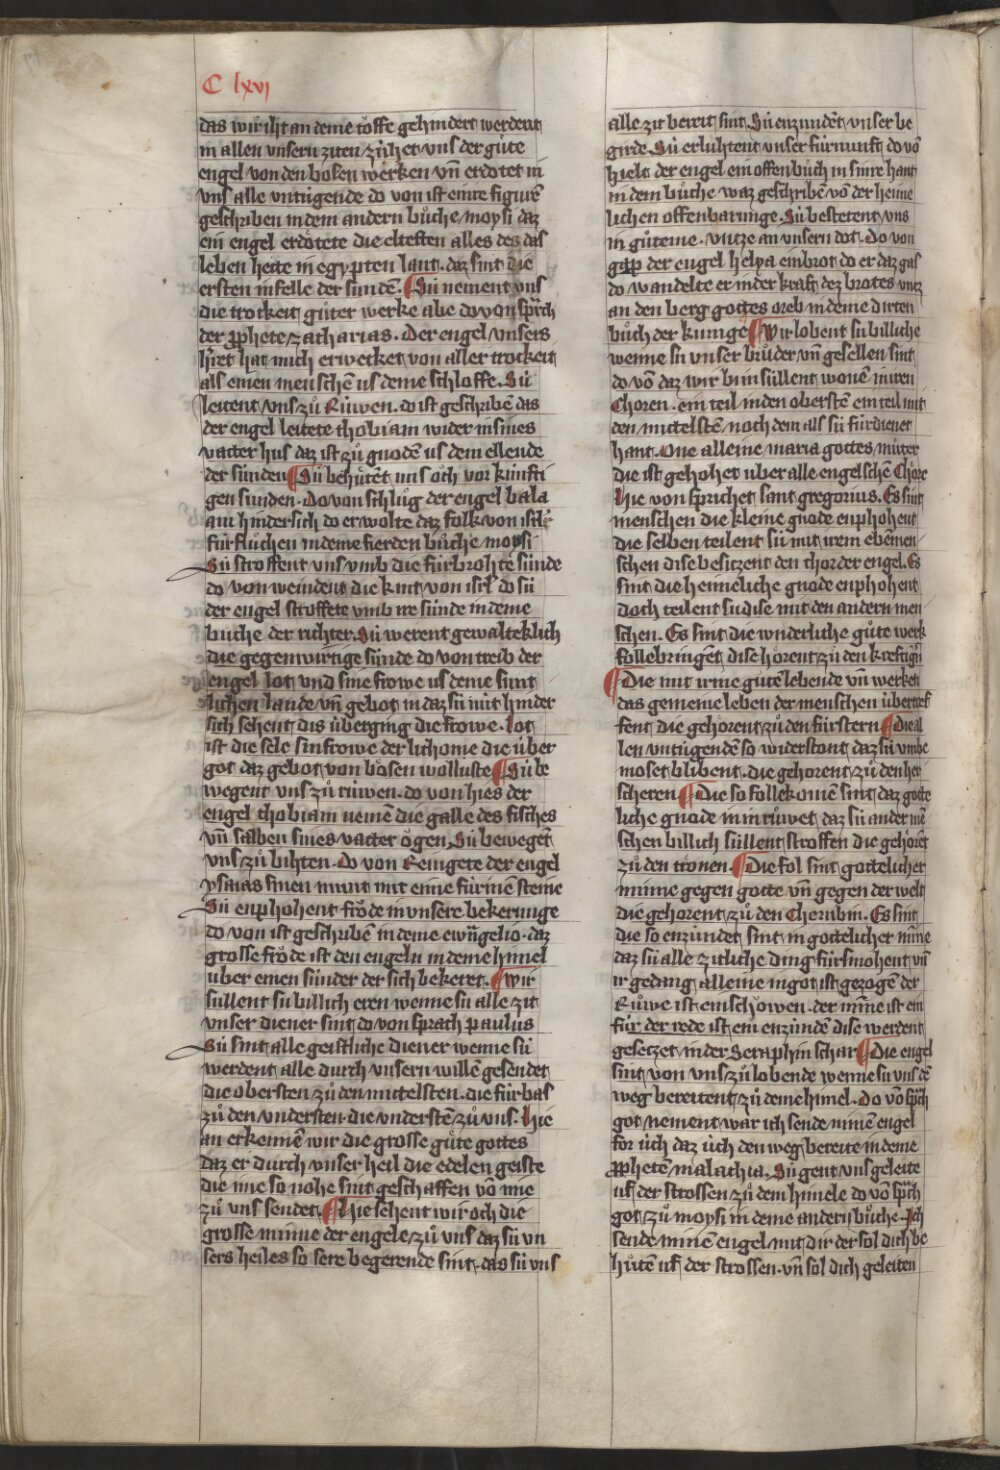 C lxvj
das wir iht an deme töffe gehindert werdent
in allen vnsern ziten / zúhet vns der gůte
engel von den bosen werken vñ erdotet in
vns alle vntugende do von ist eine figure
geschriben in dem andern bůche / moysi daz
ein engel erdötete die eltesten alles des das
leben hette in egypten lant. daz sint die
ersten infelle der súnden. Sú nement vns
die trockeit gůter werke abe do von sprach
der prophete zacharias. Der engel vnsers
herren hat mich erwecket von aller trockeit
als einen menschē us deme schloffe. Sú
leitent vns zů Růwen. do ist geschribē das
der engel leitete thobiam wider in sines
vatter hus daz ist zů gnodē us dem ellende
der súnden Sú behůtēt uns och vor kúnfti
gen sunden. Do von schlůg der engel bala
am hindersich do er wolte daz folk von isrl
fúrflůchen in deme fierden bůche moysi
Sú stroffent vns vmb die fúrbrohtē súnde
do von weindent die kint von isrl do sú
der engel stroffete vmb ire súnde in deme
buche der richter. Sú werent gewalteklich
die gegenwirtige súnde do von treib der
engel lot vnd sine frowe us deme súnt
lichen lande vñ gebot in daz sú nút hinder
sich sehent dis úberging die frowe. lot
ist die sele sin frowe der lichome die úber
got daz gebot von bösen wolluste Sú be
wegent vns zů rúwen. do von hies der
engel thobiam nemē die galle des fisches
vñ salben sines vatter ögen. Sú bewegēt
vns zů bihten. do von Reinigete der engel
ysaias sinen munt mit eime fúrinē steine
Sú enphohent fröde in vnsere bekerunge
do von ist geschribē in deme ewāgelio. daz
grosse fröde ist den engeln in deme himel
uber einen súnder der sich bekeret. Wir
súllent sú billich eren wenne sú alle zit
vnser diener sint do von sprach paulus
Sú sint alle geistliche diener wenne sú
werdent alle durch vnsern willē gesendet
die obersten zů den mittelsten. die fúrbas
zů den vndersten. die vnderstē zů vns. Hie
an erkennē wir die grosse gůte gottes
daz er durch vnser heil die edelen geiste
die ime so nohe sint geschaffen vō ime
zů vns sendet. Hie sehent wir och die
grosse minne der engele zů vns daz sú vn
sers heiles so sere begerende sint. das sú vns
alle zit bereit sint. Sú enzundēt vnser be
girde. Sú erlúhtent vnser fúrnunft do vō
hielt der engel ein offen bůch in sinre hant
in dem bůche waz geschribē vō der heime
lichen offenbarunge. Sú bestetent vns
in gůteme. vntze an vnsern dot. do von
gap der engel helya ein brot do er daz gas
do wandelte er in der kraft dez brotes vntz
an den berg gottes oreb in deme dirten
bůch der kunige Wir lobent sú billiche
wenne sú vnser brůder vñ gesellen sint
do vō daz wir bi in súllent wonē in iren
Choren. ein teil in den oberstē ein teil mit
den mittelstē noch dem als sú fúr dienet
hant. One alleine maria gottes můter
die ist gehohet uber alle engelschē Chöre
Hie von sprichet sant gregorius. Es sint
menschen die kleine gnode enphohent
die selben teilent sú mit irem ebemen
schen dise besitzent den chor der engel. Es
sint die heimeliche gnode enphohent
doch teilent sú dise mit den andern men
schen. Es sint die wnderliche gůte werk
follebringēt dise hörent zů den kreftigē
Die mit irme gůtē lebende vñ werken
das gemeine leben der menschen úbertref
fent die gehorent zů den fúrstern Die al
len vntúgendē so widerstont daz sú vmbe
moset blibent. die gehorent zů den her
scheren Die so follekomē sint daz gotte
liche gnode in in růwet daz sú ander mē
schen billich súllent stroffen die gehorēt
zů den tronen. Die fol sint gottelicher
minne gegen gotte vñ gegen der welt
die gehorent zů den Cherubin. Es sint
die so enzúndet sint in gottelicher mīne
daz sú alle zitliche ding fúrsmohent vñ
ir gedang alleine in got ist gezogē der
Růwe ist ein schöwen. der mīne ist ein
fúr der rede ist ein enzúndē dise werdent
gesetzet in der Seraphin schar Die engel
sint von vns zů lobende wenne sú vns dē
weg bereitent zů deme himel. do vō sprach
got nement war ich sende minē engel
for úch daz úch den weg bereite in deme
prophetē malachia. Sú gent vns geleite
uf der strossen zů dem himele do vō sprach
got zů moysi in deme andern bůche. Ich
sende minē engel mit dir der sol dich be
hůtē uf der strossen. vñ sol dich geleiten